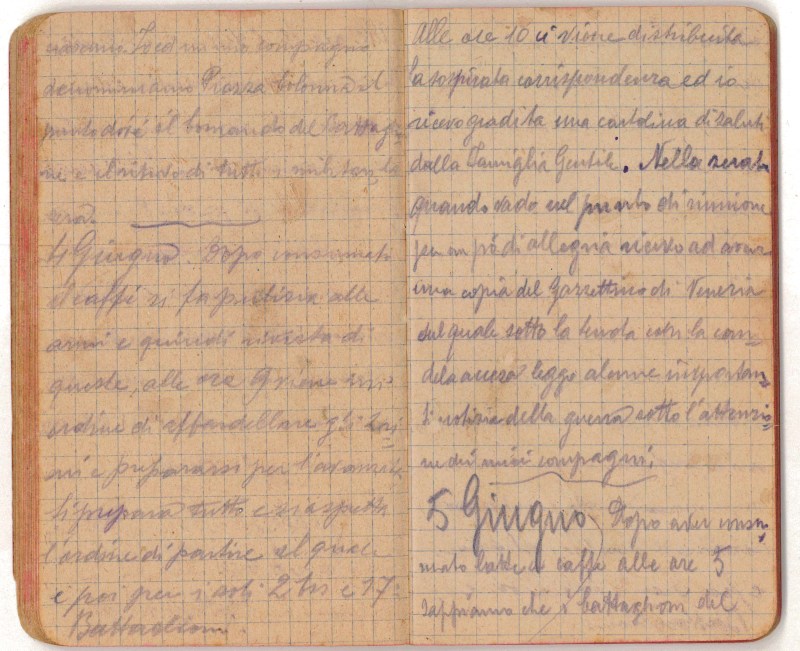 Io ed un mio compagno
denominiamo Piazza Colonna il
punto dove il Comando del Battaglio
ne e il ritrovo di tutti i militari la
sera.
4 Giugno. Dopo consumati
il caffè si fa pulizia alle
armi e quindi rivista di
queste, alle ore 9 viene
ordine di affardellare gli zai
ni e prepararsi per l'avanzata
Si prepara tutto e si aspetta
l'ordine di partire il quale
è poi per i soli 2 e 17
Battaglioni.
Alle ore 10 ci viene distribuita
la sospirata corrispondenza ed io
ricevo gradita una cartolina di saluti
dalla Famiglia Gentile. Nella serata
quando vado nel punto di riunione
per un pò di allegria riesco ad aver
una copia del Gazzettino di Venezia
del quale sotto la tenda con la can=
dela accesa leggo alcune importan=
ti notizie della guerra sotto l'attenzio=
ne dei miei compagni,
5 Giugno Dopo aver consu,
mato latte e caffè alle ore 5
sappiamo che i battaglioni del